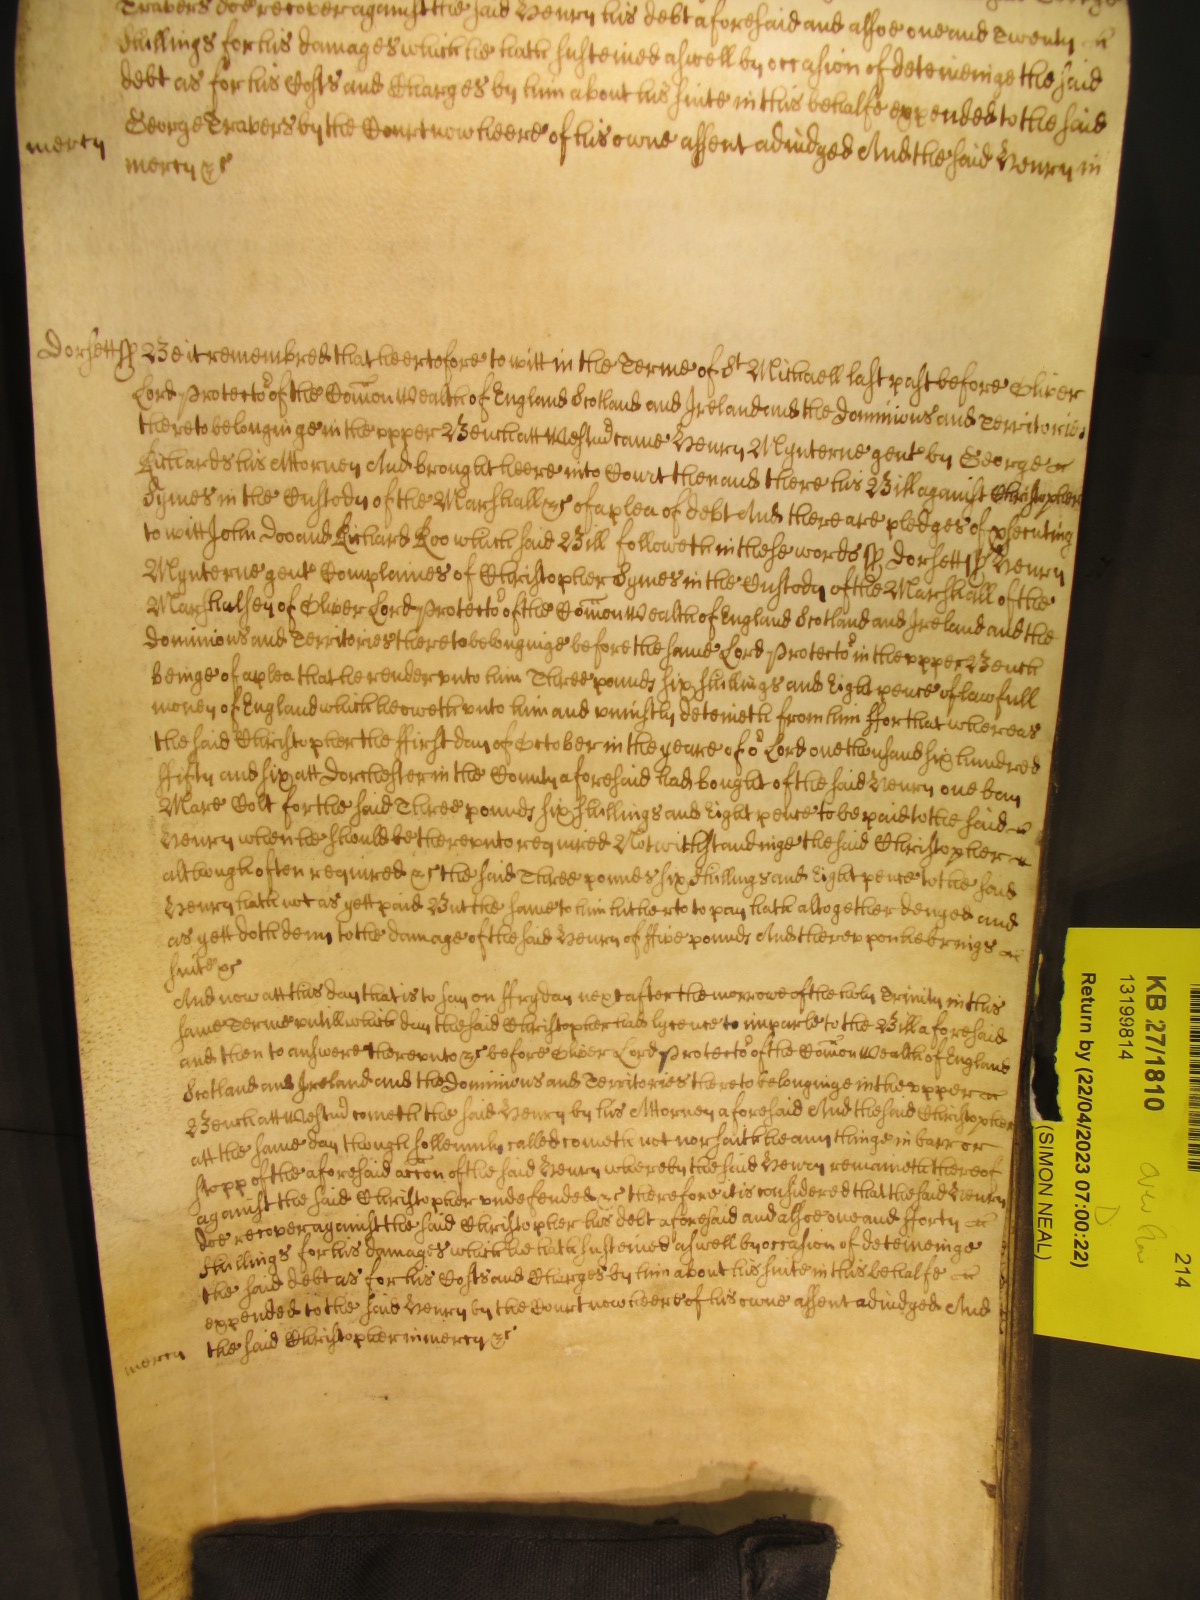 Travers doe recover against the said Henry his debt aforesaid and alsoe one and Twenty
shillings for his damages which he hath susteined aswell by occasion of deteineinge the said
debt as for his Costs and Charges by him about his suite in this behalfe expended to the said
George Travers by the Court now heere of his owne assent adiudged And the said Henry in
mercy
mercy &c
Dorsett ss Be it remembred that heertofore to witt in the Terme of St Michaell last past before Oliver
Lord Protector of the Comon Wealth of England Scotland and Ireland and the Dominions and Territories
thereto belonginge in the vpper Bench att Westmr came Henry Mynterne gent by George
Richards his Attorney And brought heere into Court then and there his Bill against Christopher
Symes in the Custody of the Marshall &c of a plea of debt And there are pledges of psecuting
to witt John Doo and Richard Roo which said Bill followeth in these words ss Dorsett ss Henry
Mynterne gent Complaines of Christopher Symes in the Custody of the Marshall of the
Marshalsey of Oliver Lord Protector of the Comon Wealth of England Scotland and Ireland and the
Dominions and Territories thereto belonginge before the same Lord Protector in the vpper Bench
beinge of a plea that he render vnto him Three pounds six shillings and Eight pence of lawfull
money of England which he oweth vnto him and vniustly deteineth from him ffor that whereas
the said Christopher the ffirst day of October in the yeare of or Lord one thousand six hundred
ffifty and six att Dorchester in the County aforesaid had bought of the said Henry one bay
Mare Colt for the said Three pounds six shillings and Eight pence to be paid to the said
Henry when he should be therevnto required Notwithstandinge the said Christopher
although often required &c the said Three pounds six shillings and Eight pence to the said
Henry hath not as yett paid But the same to him hitherto to pay hath altogether denyed and
as yett doth deny to the damage of the said Henry of ffive pounds And therevpon he brings
suite &c
And now att this day that is to say on ffryday next after the morrowe of the holy Trinity in this
same Terme vntill which day the said Christopher had lycence to imparle to the Bill aforesaid
and then to answere therevnto &c before Oliver Lord Protector of the Comon Wealth of England
Scotland and Ireland and the Dominions and Territories thereto belonginge in the vpper
Bench att Westmr cometh the said Henry by his Attorney aforesaid And the said Christopher
att the same day though sollemnly called cometh not nor saith he any thinge in barr or
stopp of the aforesaid accon of the said Henry whereby the said Henry remaineth thereof
against the said Christopher vndefended &c therefore it is considered that the said Henry
doe recover against the said Christopher his debt aforesaid and alsoe one and fforty
shillings for his damages which he hath susteined aswell by occasion of deteineinge
the said debt as for his Costs and Charges by him about his suite in this behalfe
expended to the said Henry by the Court now heere of his owne assent adiudged And
mercy the said Christopher in mercy &c
KB 27/1810
13199814
Return by (22/04/2023 07:00:22)
(SIMON NEAL)
214
D